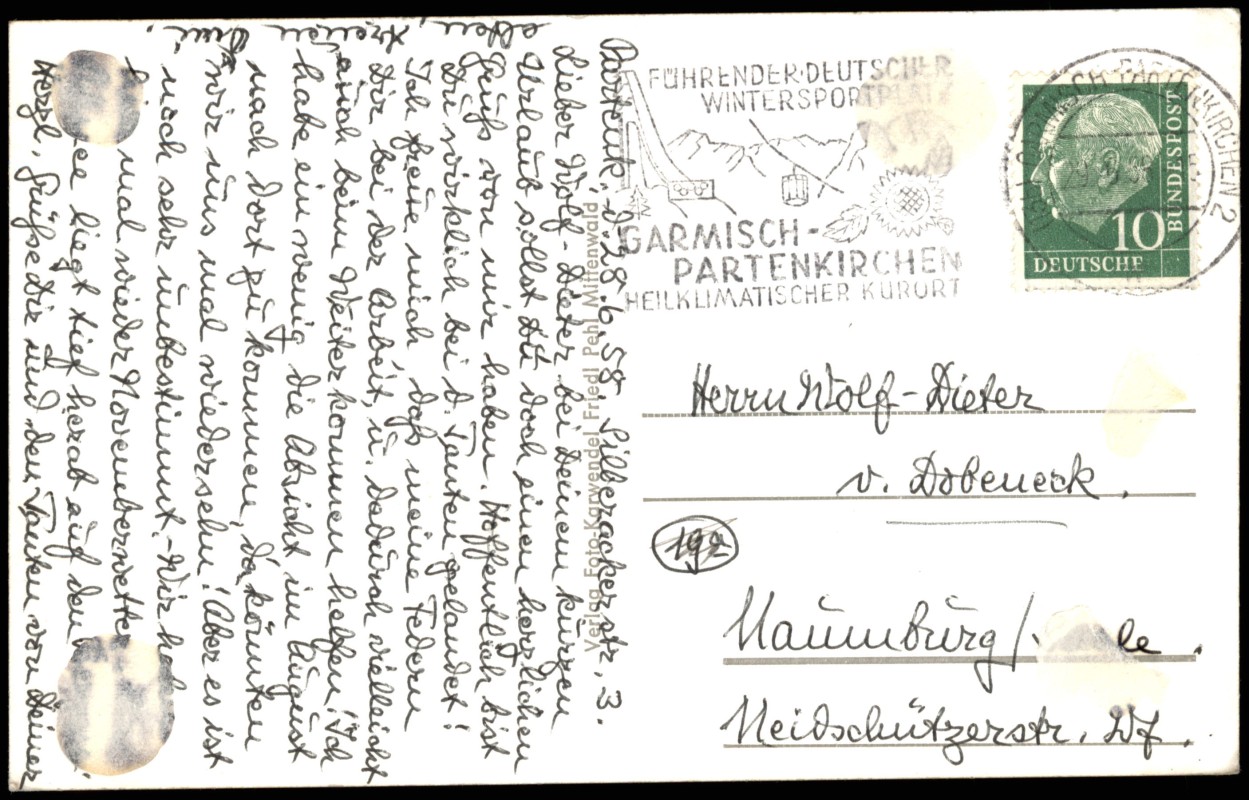 Partenk., d. 28.6.58, Silberackerstr. 3.
Lieber Wolf-Dieter bei Deinem kurzen
Urlaub sollst Du doch einen herzlichen
Gruß von mir haben. Hoffentlich bist
Du wirklich bei d. Tanten gelandet!
Ich freute mich, daß meine Federn
Dir bei der Arbeit u. dadurch vielleicht
auch beim Weiterkommen helfen! Ich
habe ein wenig die Absicht im August
nach dort zu kommen, da könnten
wir uns mal wiedersehn! Aber es ist
noch sehr unbestimmt. - Wir hab
mal wieder Novemberwette
ee liegt tief herab auf den
Herzl. Grüße Dir und den Tanten von Deiner
alten, treuen
Verlag Foto-Karwendel Friedl Pehl Mittenwald
FÜHRENDER DEUTSCHER
WINTERSPORTPLATZ
GARMISCH-
PARTENKIRCHEN
HEILKLIMATISCHER KURORT
GARMISCH-PARTENKIRCHEN 2
10
DEUTSCHE
BUNDESPOST
Herrn Wolf-Dieter
v. Dobeneck.
19a
Naumburg/ le.
Neidschützerstr. Wf.